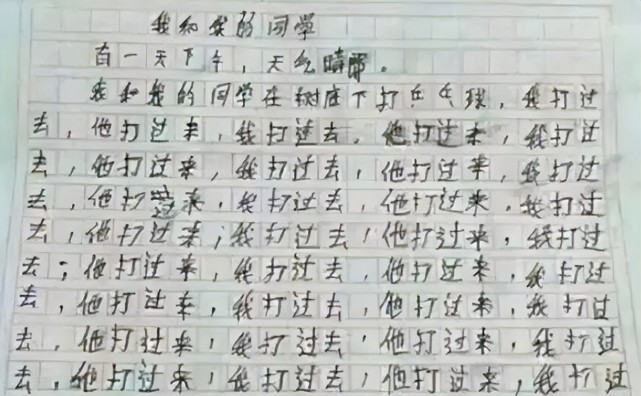 我和我的同学
有一天下午，天气晴朗。
我和我的同学在树底下打乒乓球，我打过
去，他打过来，我打过去，他打过来，我打过
去，他打过来，我打过去，他打过来，我打过
去，他打过来，我打过去，他打过来，我打过
去，他打过来；我打过去，他打过来，我打过
去；他打过来，我打过去，他打过来，我打过
去，他打过来，我打过去，他打过来，我打过
去，他打过来，我打过去，他打过来，我打过
去，他打过来，我打过去，他打过来，我打过